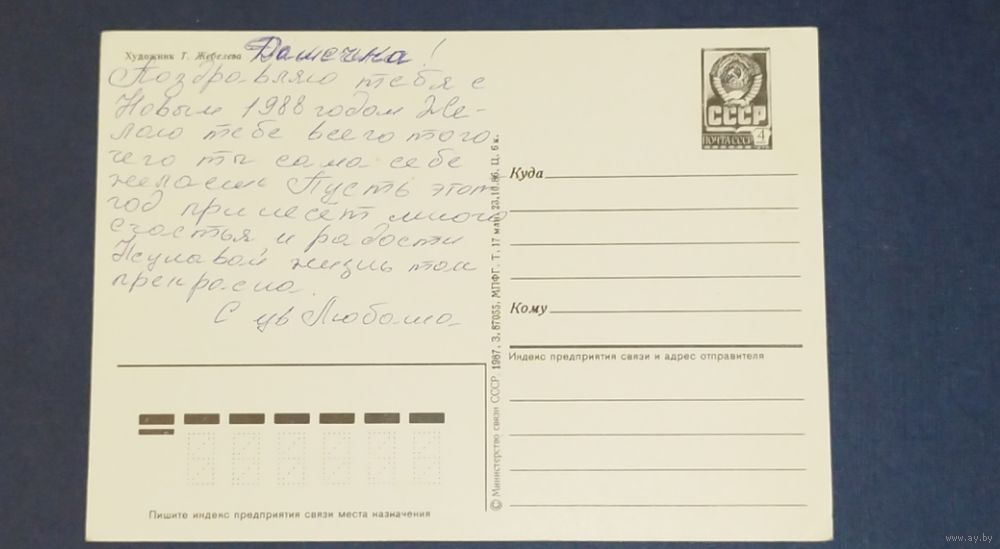 Художник Т. Жебелева
Поздравляю тебя с
Новым 1988 годом Же-
лаю тебе всего того
чего ты сама себе
желаешь Пусть этот
год принесёт много
счастья и радости
жизнь так
прекрасна.
С ув Любаша
СССР
ПОЧТА СССР 4
Куда
Кому
Индекс предприятия связи и адрес отправителя
Пишите индекс предприятия связи места назначения
© Министерство связи СССР 1987. З. 87055. МПФГ. Т. 17 млн. 23.10.86. Ц. 6 к.
www.ay.by